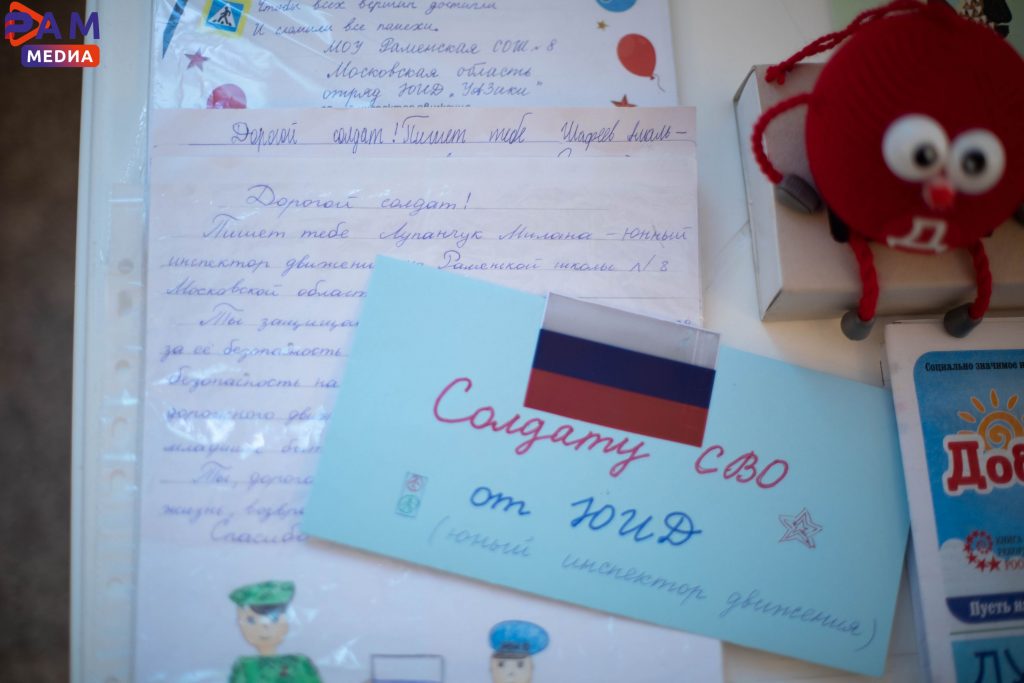 РАМ
МЕДИА
Чтобы всех вершин достигли
И сломили все помехи.
МОУ Раменская СОШ № 8
Московская область
отряд ЮИД „УАЗики"
Дорогой солдат! Пишет тебе
Дорогой солдат!
Пишет тебе Лупанчук Милана – юный
инспектор движени Раменской школы № 8
Московской област
Ты защища
за её безопасность
безопасность на
дорожного движ
Ты, дорого
жизнь, возвр
Спасибо
Солдату СВО
от ЮИД
(юный инспектор движения)
Д
Социально значимое
Доб
КНИГА
РОС
Пусть н